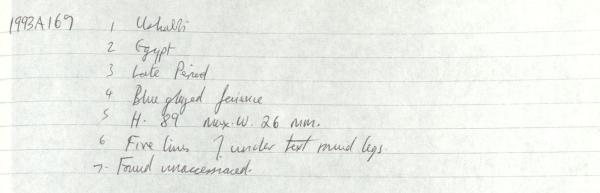 1993A169 1 Ushabti
2 Egypt
3 Late Period
4 Blue glazed faience
5 H. 89 max. W. 26 mm.
6 Five lines under text round legs.
7. Found unaccessioned.